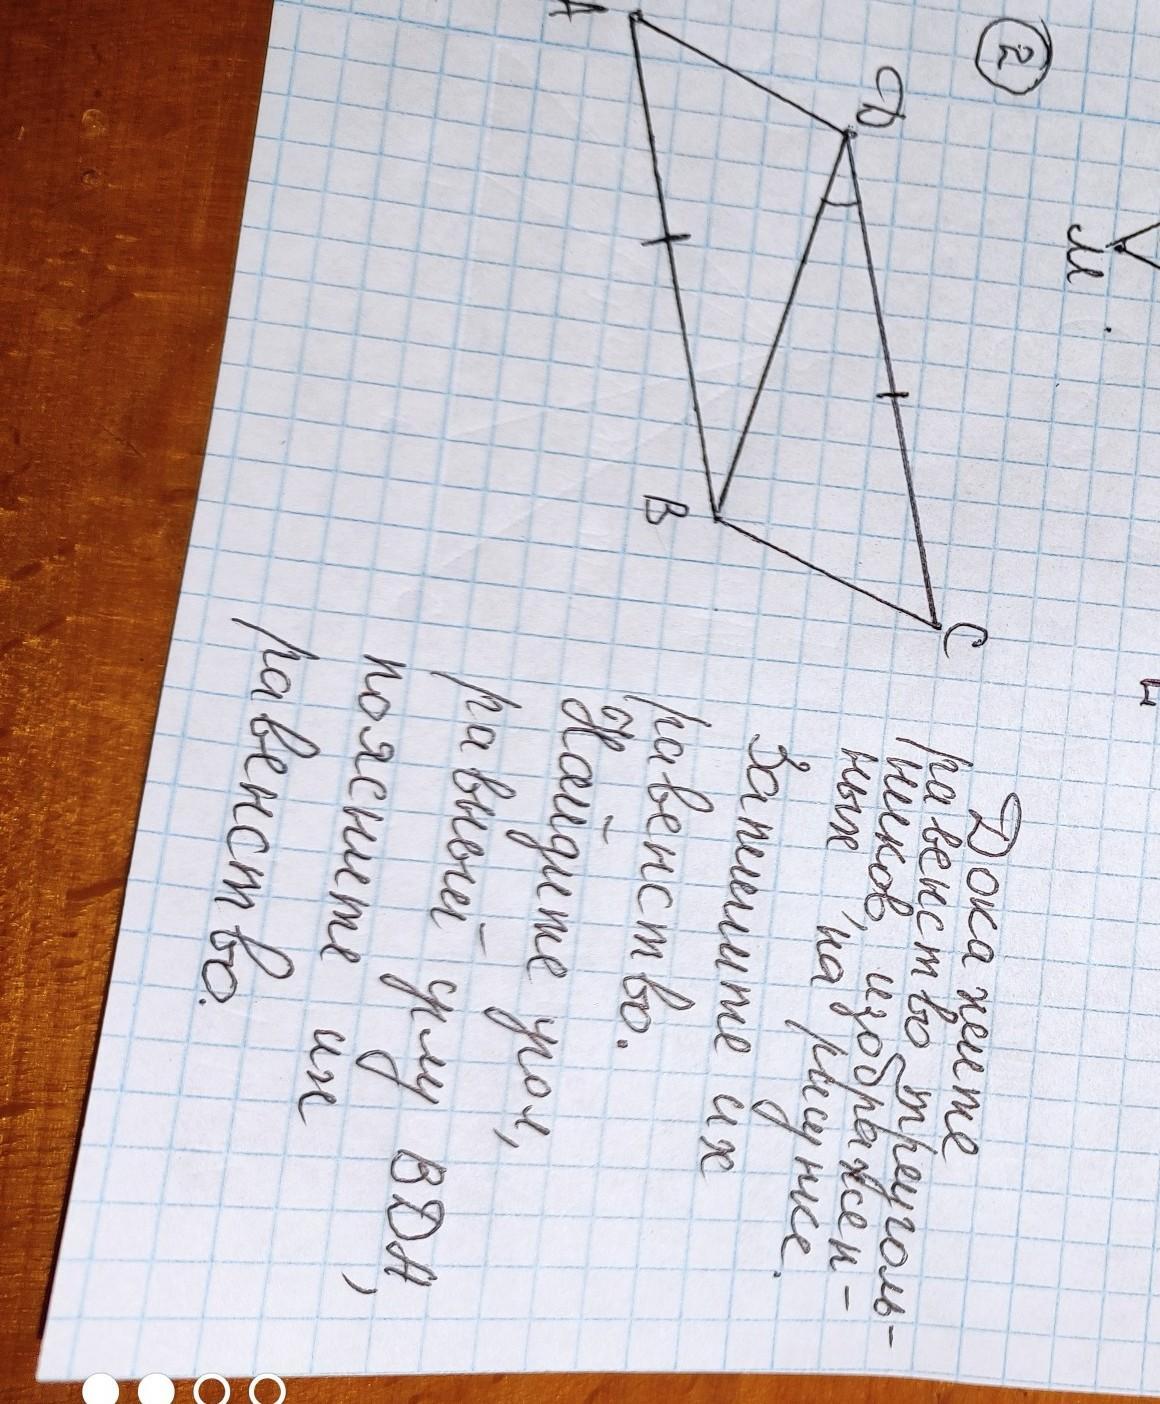 2
A
D
B
C
M
Докажите
равенство треуголь-
ников, изображен-
ных на рисунке.
Запишите их
равенство.
Найдите угол,
равный углу BDA,
поясните их
равенство.